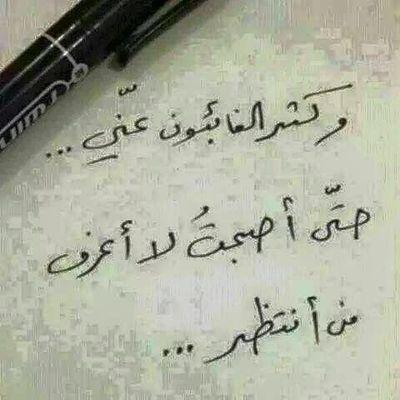 وكثر الغائبون عنّي ...
حتّى أصبحتُ لا أعرف
من أنتظر ...